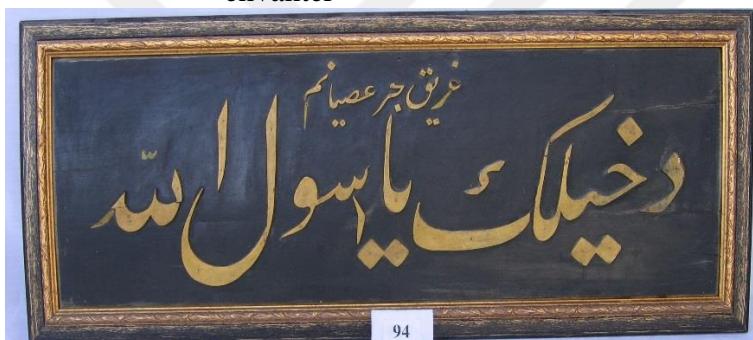 غريق بحر عصيانم
دخيلك يا رسول الله
94